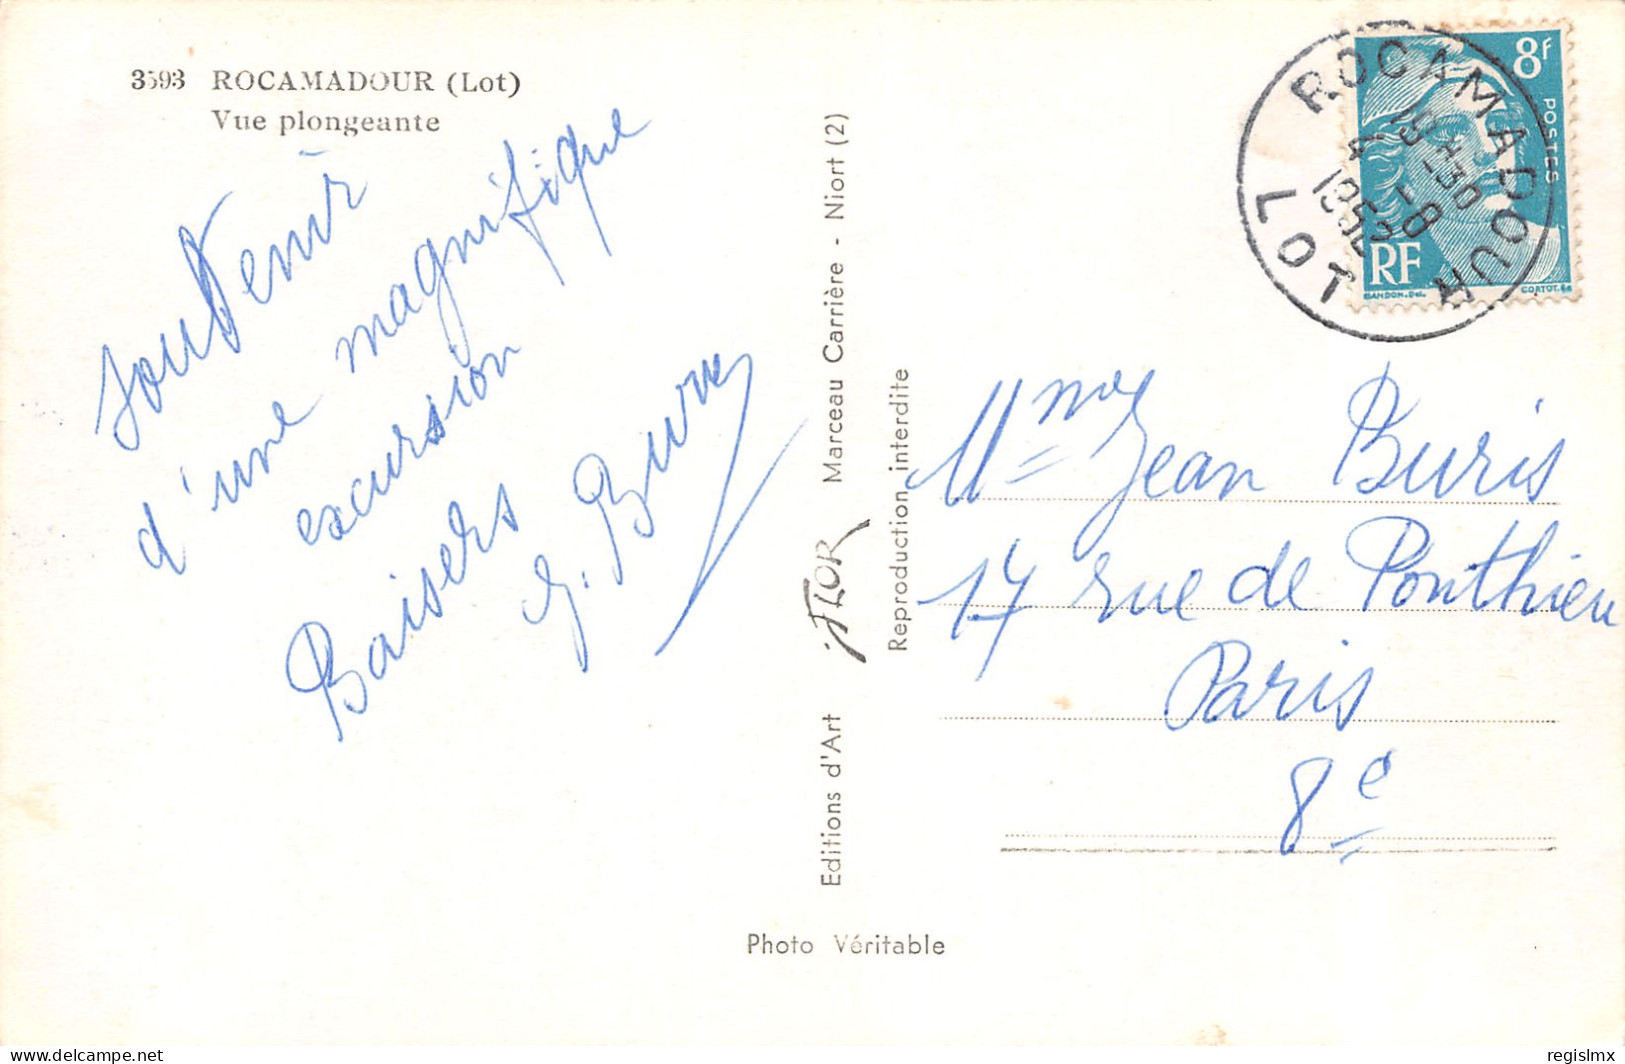 3593 ROCAMADOUR (Lot)
Vue plongeante
souvenir
d'une magnifique
excursion
Baisers
Editions d'Art JFLOR Marceau Carrière - Niort (2)
Reproduction interdite
Photo Véritable
ROCAMADOUR
LOT
1952
8f
POSTES
RF
GANDON.Del.
CORTOT.Sc
Mme Jean Buris
17 rue de Ponthieu
Paris
8e
www.delcampe.net
regislmx